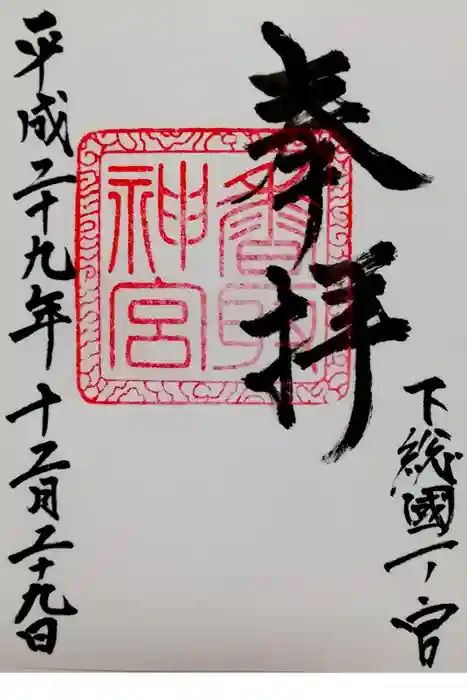 奉拝
下総國一ノ宮
香取
神宮
平成二十九年十二月二十九日